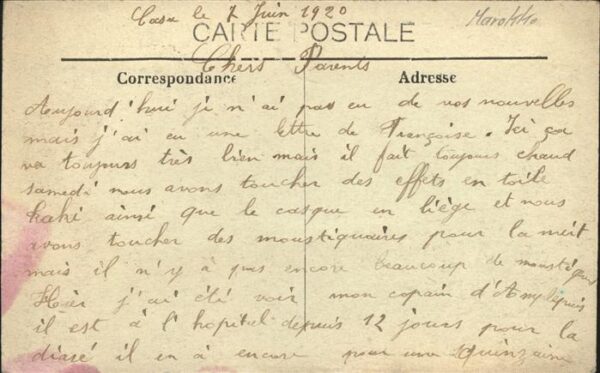 Casa le 7 Juin 1920
Marokko
CARTE POSTALE
Chers Parents
Correspondance
Adresse
Aujourd'hui je n'ai pas eu de vos nouvelles
mais j'ai eu une lettre de Françoise. Ici ça
va toujours très bien mais il fait toujours chaud
samedi nous avons toucher des effets en toile
kaki ainsi que le casque en liège et nous
avons toucher des moustiquaires pour la nuit
mais il n'y à pas encore beaucoup de moustiques
Hier j'ai été voir mon copain
il est à l'hopital depuis 12 jours pour la
il en à encore pour une quinzaine